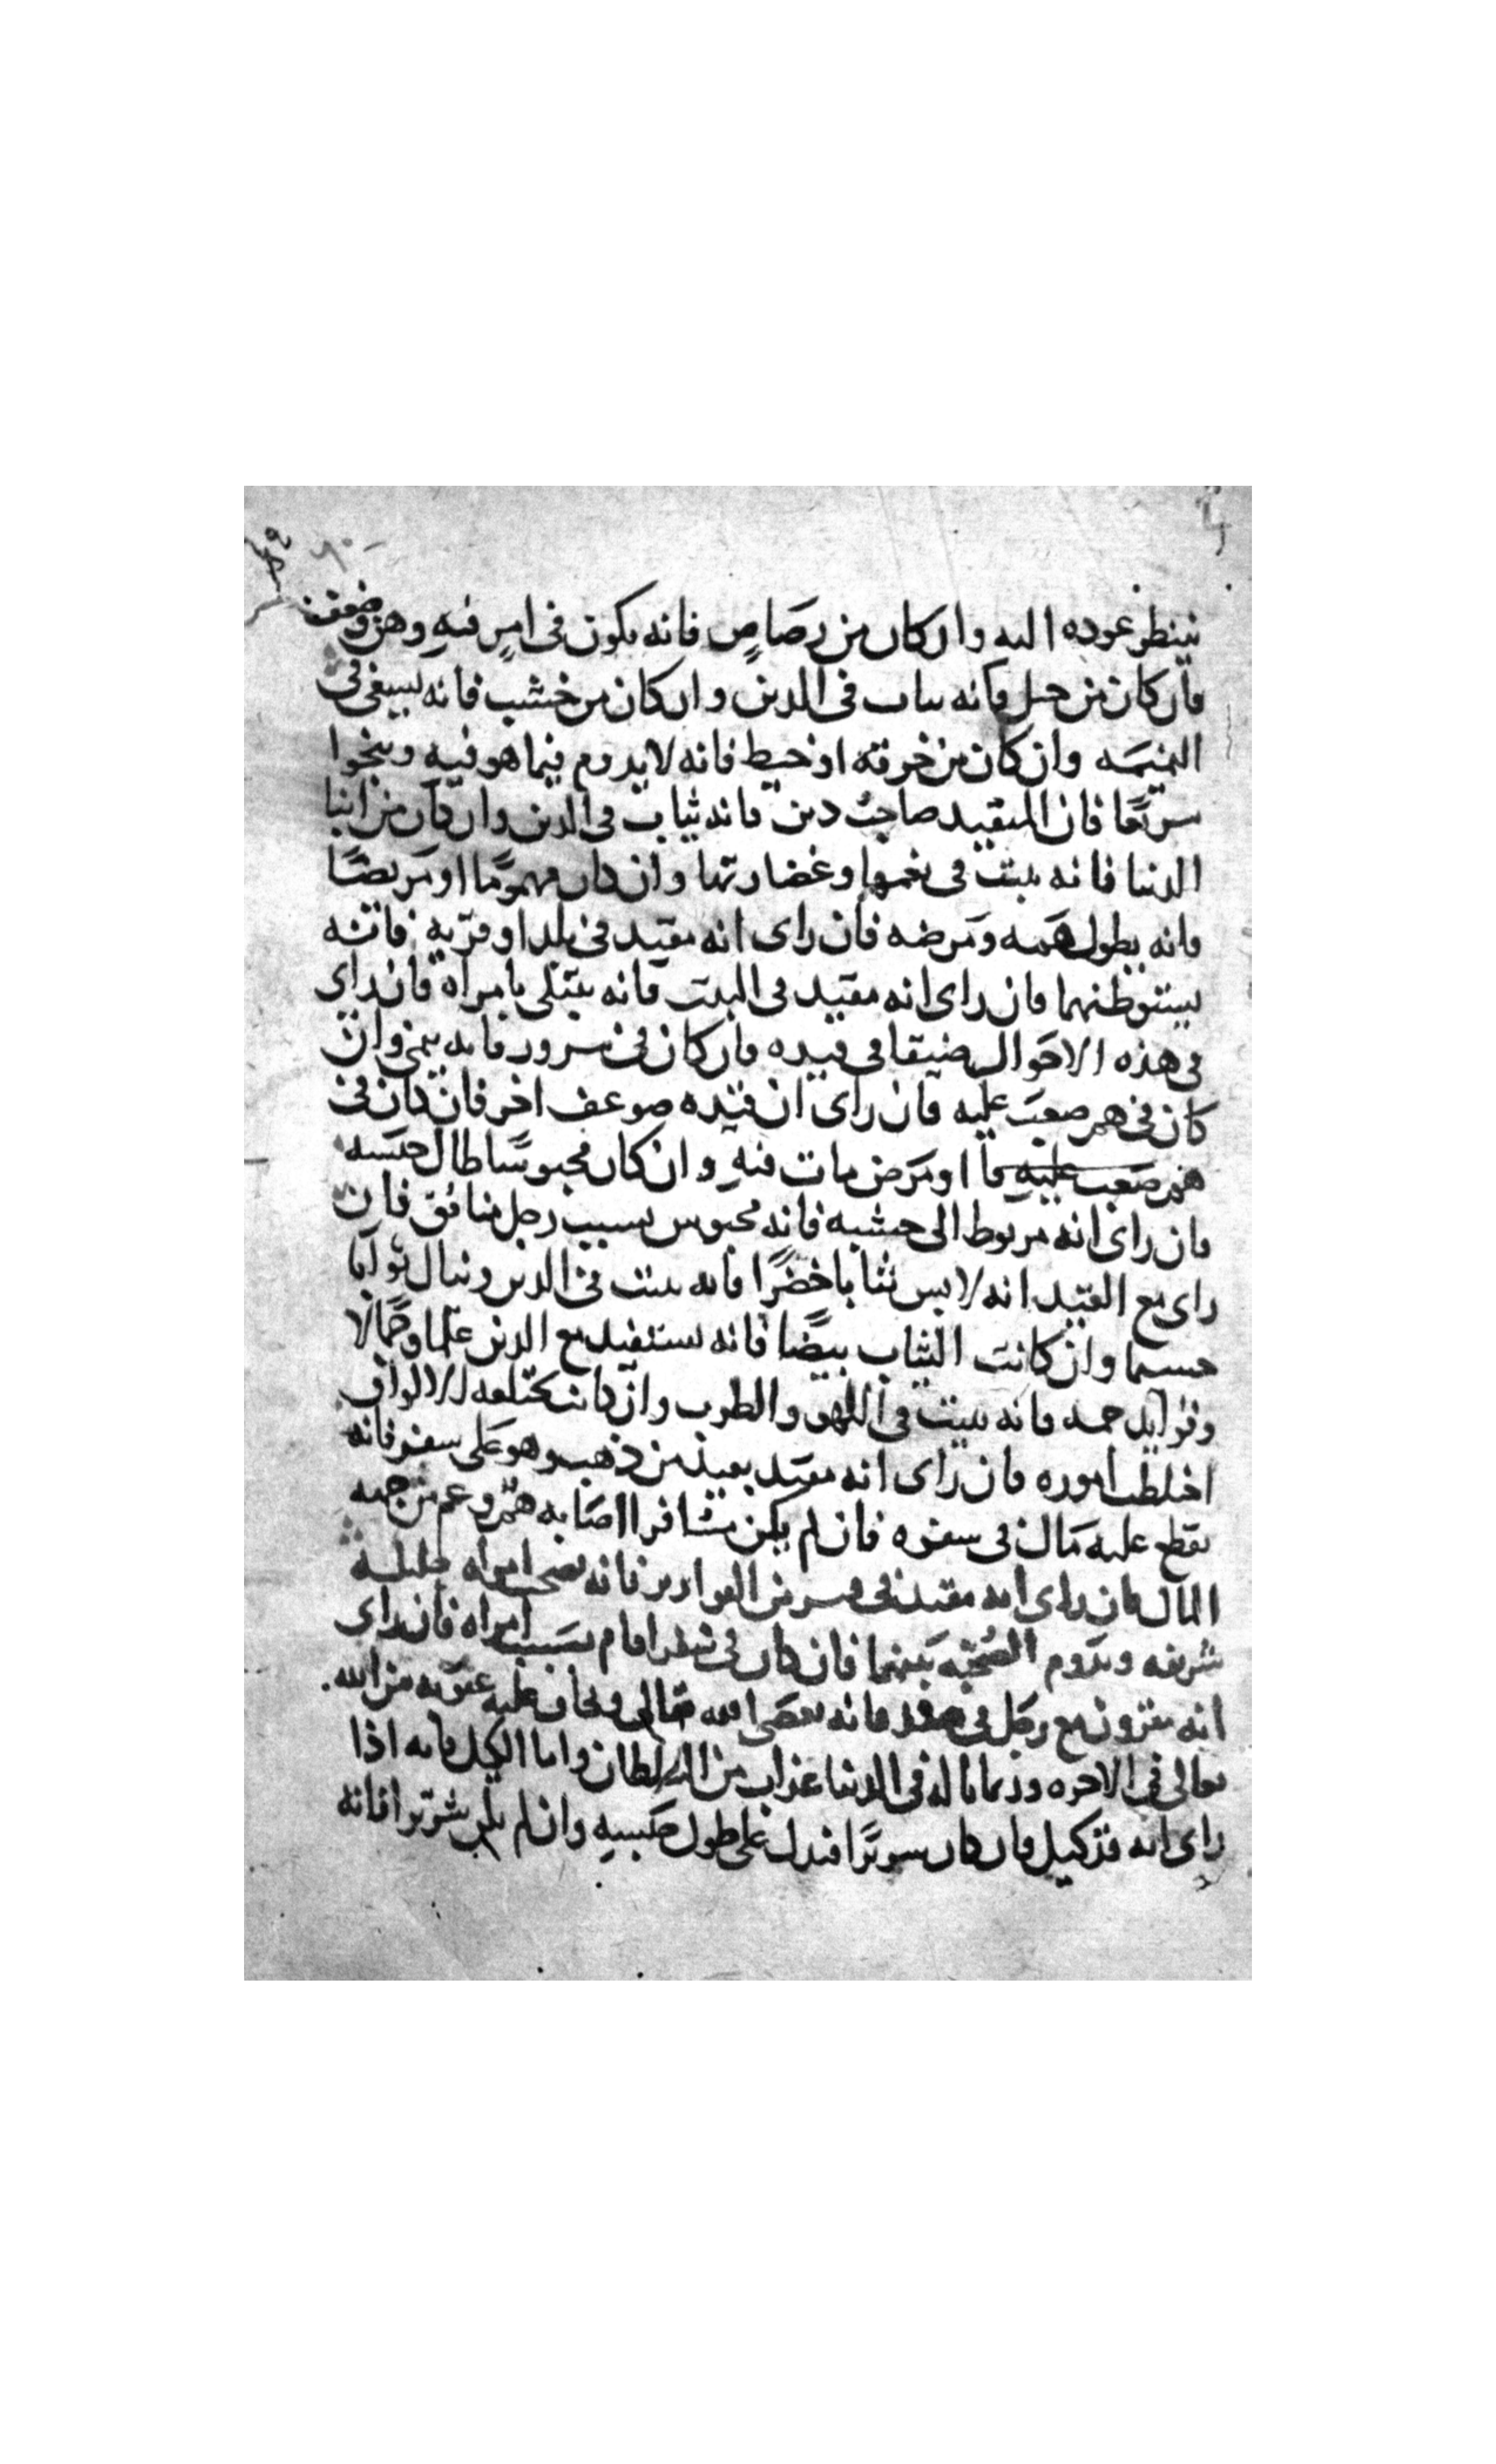 ينتظر عوده اليه وان كان من رصاص فانه يكون في امر فيه وهن وضعف
فان كان من حبل فانه ثبات في الدين وان كان من خشب فانه يسعى في
النميمه وان كان من خرقه او خيط فانه لا يدوم فيما هو فيه وينجوا
سريعا فان المقيد صاحب دين فانه ثبات في الدين وان كان من ابنا
الدنيا فانه يثبت في نعيمها وغضارتها وان كان مهموما او مريضا
فانه يطول همه ومرضه فان راى انه مقيد في بلد او قرية فانه
يستوطنهما فان راى انه مقيد في البيت فانه يبتلى بامراه فان راى
في هذه الاحوال ضيقا في قيده فان كان في سرور فانه ينمي وان
كان في هم صعب عليه فان راى ان قيده ضوعف اخر فان كان في
هم صعب عليه فا او مرض مات فيه وان كان محبوسا طال حبسه
فان راى انه مربوط الى خشبه فانه محبوس بسبب رجل منافق فان
راى مع القيد انه لابس ثيابا خضرا فانه يثبت في الدين وينال ثوابا
جسيما وان كانت الثياب بيضا فانه يستفيد مع الدين علما وجمالا
فانه يثبت في اللهو والطرب وان كانت مختلفه الالوان
اختلطت اموره فان راى انه مقيد بقيد من ذهب وهو على سفر فانه
يقطع عليه مال في سفره فان لم يكن مسافرا اصابه هم وغم من جهه
المال فان راى انه مقيد في من القوارير فانه يصحب امراه جليله
شريفه وتدوم الصحبه بينهما فان كان في سفر اقام بسبب امراه فان راى
انه مقرون مع رجل في فانه يعصى الله تعالى ويخاف عليه عقوبه من الله
تعالى في الاخره وربما ناله في الدنيا عذاب من السلطان واما الكبل فانه اذا
راى انه قد كبل فان كان سريرا فيدل على طول حبسه وان لم يكن شريرا فانه